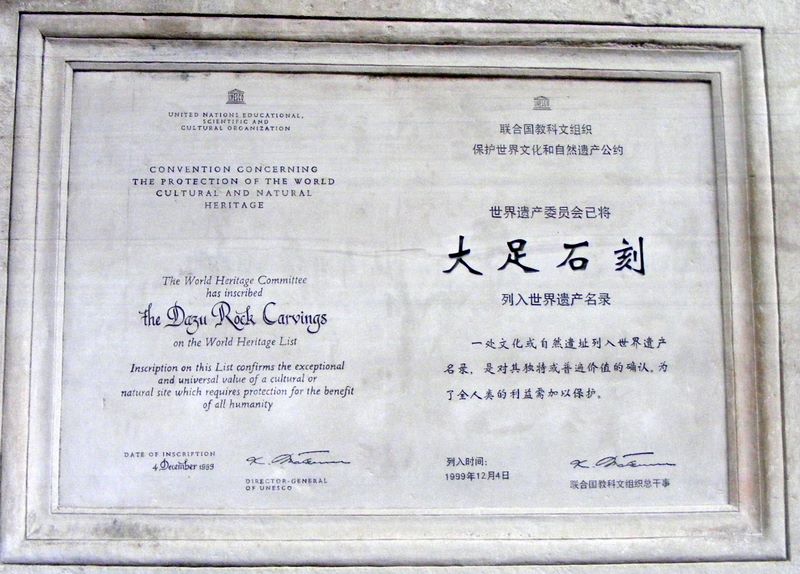 UNESCO
UNITED NATIONS EDUCATIONAL,
SCIENTIFIC AND
CULTURAL ORGANIZATION
CONVENTION CONCERNING
THE PROTECTION OF THE WORLD
CULTURAL AND NATURAL
HERITAGE
The World Heritage Committee
has inscribed
the Dazu Rock Carvings
on the World Heritage List
Inscription on this List confirms the exceptional
and universal value of a cultural or
natural site which requires protection for the benefit
of all humanity
DATE OF INSCRIPTION
4 December 1999
DIRECTOR-GENERAL
OF UNESCO
UNESCO
联合国教科文组织
保护世界文化和自然遗产公约
世界遗产委员会已将
大足石刻
列入世界遗产名录
一处文化或自然遗址列入世界遗产
名录，是对其独特或普遍价值的确认，为
了全人类的利益需加以保护。
列入时间：
1999年12月4日
联合国教科文组织总干事